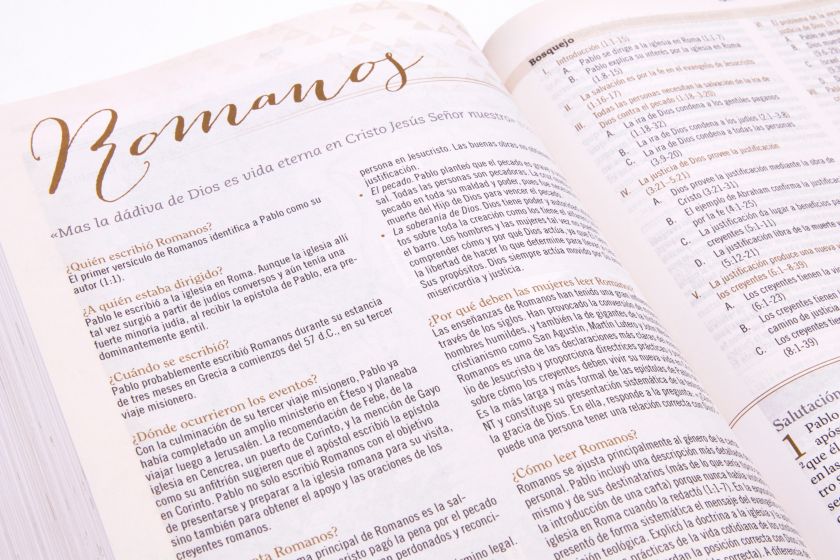 Romanos
«Mas la dádiva de Dios es vida eterna en Cristo Jesús Señor nuestro»
¿Quién escribió Romanos?
El primer versículo de Romanos identifica a Pablo como su
autor (1:1).
¿A quién estaba dirigido?
Pablo le escribió a la iglesia en Roma. Aunque la iglesia allí
tal vez surgió a partir de judíos conversos y aún tenía una
fuerte minoría judía, al recibir la epístola de Pablo, era pre-
dominantemente gentil.
¿Cuándo se escribió?
Pablo probablemente escribió Romanos durante su estancia
de tres meses en Grecia a comienzos del 57 d.C., en su tercer
viaje misionero.
¿Dónde ocurrieron los eventos?
Con la culminación de su tercer viaje misionero, Pablo ya
había completado un amplio ministerio en Éfeso y planeaba
viajar luego a Jerusalén. La recomendación de Febe, de la
iglesia en Cencrea, un puerto de Corinto, y la mención de Gayo
como su anfitrión sugieren que el apóstol escribió la epístola
en Corinto. Pablo no solo escribió Romanos con el objetivo
de presentarse y preparar a la iglesia romana para su visita,
sino también para obtener el apoyo y las oraciones de los
creyentes romanos.
Romanos?
principal de Romanos es la sal-
pagó la pena por el pecado
perdonados y reconci-
persona en Jesucristo. Las buenas obras no
justificación.
• El pecado. Pablo planteó que el pecado es
sal. Todas las personas son pecadoras. La
pecado en toda su maldad y poder, pues
muerte del Hijo de Dios para vencer el pecado.
• La soberanía de Dios. Dios tiene poder y autoridad
tos sobre toda la creación como los tiene el
el barro. Los hombres y las mujeres tal vez no
comprender cómo y por qué Dios actúa, ya
la libertad de hacer lo que determine para llevar
Sus propósitos. Dios siempre actúa movido por
misericordia y justicia.
¿Por qué deben las mujeres leer Romanos?
Las enseñanzas de Romanos han tenido una gran
través de los siglos. Han provocado la conversión de
hombres humildes, y también la de gigantes de la
cristianismo como San Agustín, Martín Lutero y
Romanos es una de las declaraciones más claras
lio de Jesucristo y proporciona directrices prácticas
sobre cómo los creyentes deben vivir su nueva
Es la más larga y más formal de las epístolas de Pablo
NT y constituye su presentación sistemática de la
la gracia de Dios. En ella, responde a la pregunta:
puede una persona tener una relación correcta con
¿Cómo leer Romanos?
Romanos se ajusta principalmente al género de la
personal. Pablo incluyó una descripción más
mismo y de sus destinatarios (más de lo que sería
la introducción de una carta) porque nunca había
iglesia en Roma cuando la redactó (1:1-7). En la
presentó de forma sistemática el mensaje del
teológica. Explicó la doctrina a la iglesia
prácticas de la vida cotidiana de los
la posición correcta con Dios
término legal.
Bosquejo
I. Introducción (1:1-15)
A. Pablo se dirige a la iglesia en Roma (1:1-7)
B. Pablo explica su interés por la iglesia en Roma
(1:8-15)
II. La salvación es por la fe en el evangelio de Jesucristo
(1:16-17)
III. Todas las personas necesitan la salvación de la ira de
Dios contra el pecado (1:18–3:20)
A. La ira de Dios condena a los gentiles paganos
(1:18-32)
B. La ira de Dios condena a los judíos (2:1–3:8)
C. La ira de Dios condena a todas las personas
(3:9-20)
IV. La justicia de Dios provee la justificación
(3:21–5:21)
A. Dios provee la justificación mediante la obra de
Cristo (3:21-31)
B. El ejemplo de Abraham confirma la justificación
por la fe (4:1-25)
C. La justificación da lugar a beneficios
creyentes (5:1-11)
D. La justificación libra de la muerte
(5:12-21)
V. La justificación produce una nueva
los creyentes (6:1–8:39)
A. Los creyentes tienen
(6:1-23)
B. Los creyentes
camino de justicia
C. Los creyentes tienen
(8:1-39)
Salutación
1 Pablo